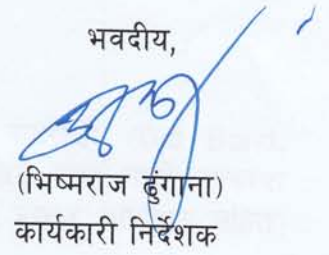 भवदीय,
(भिष्मराज ढुंगाना)
कार्यकारी निर्देशक